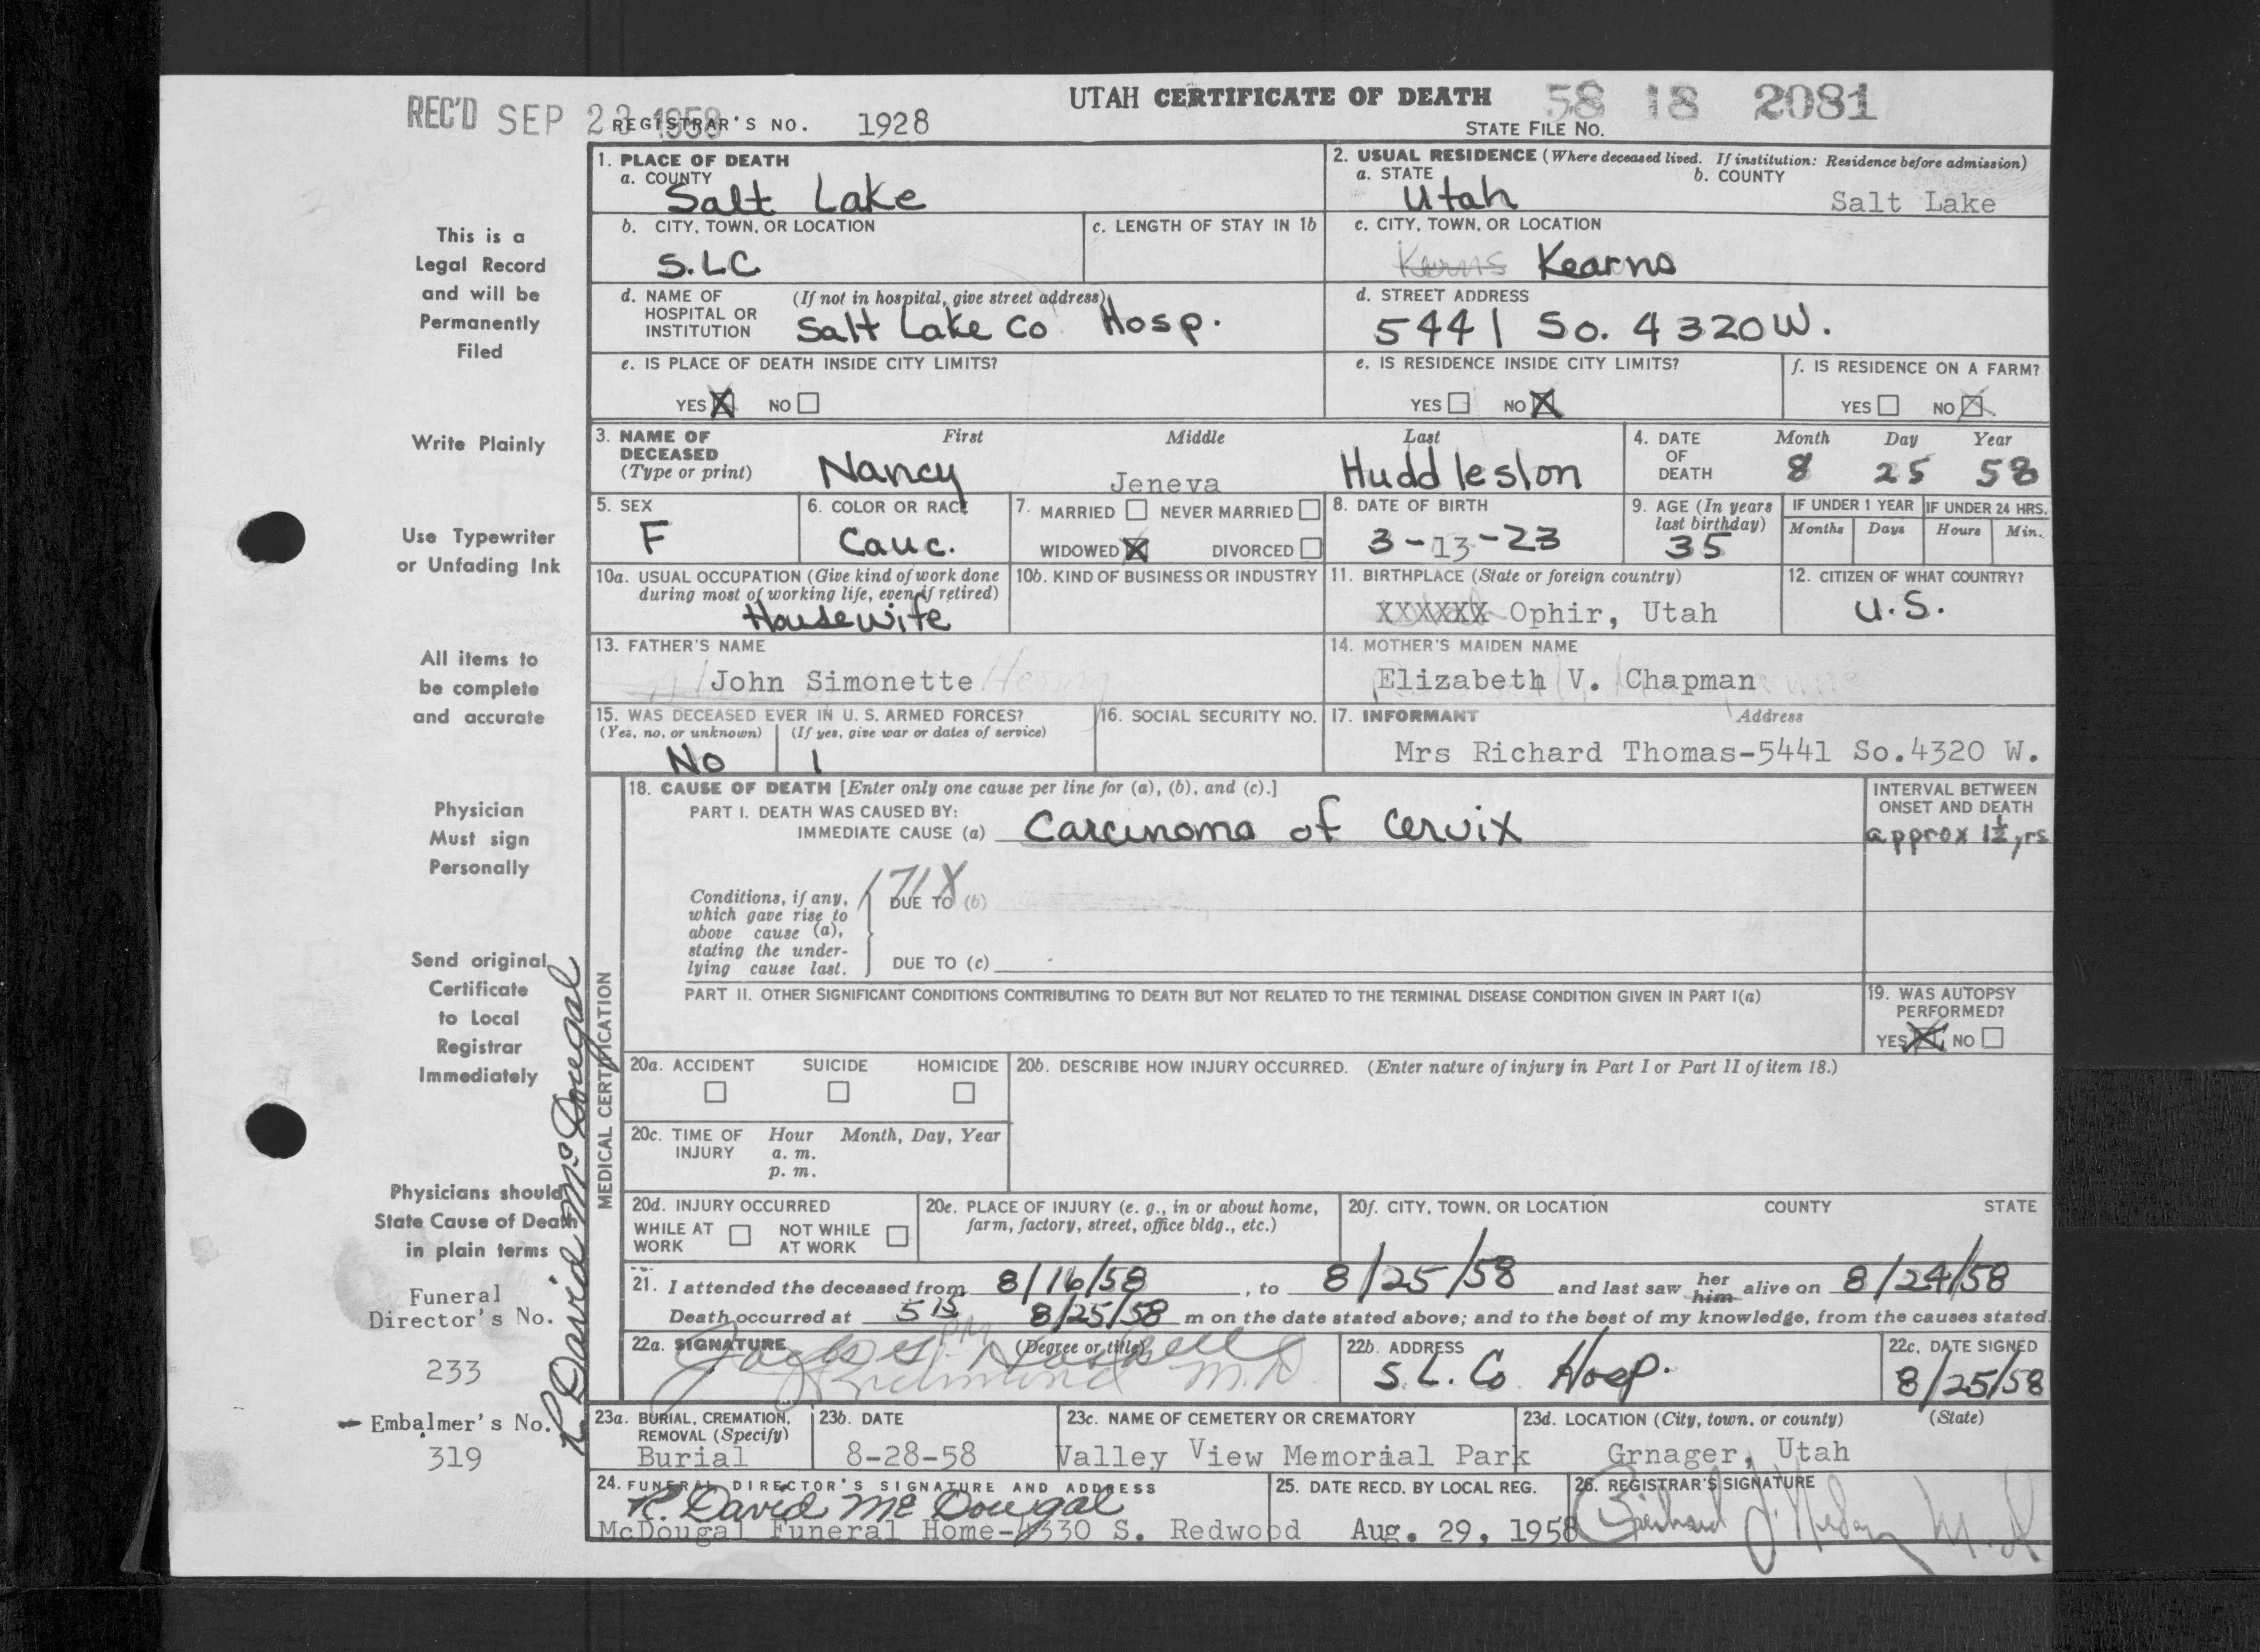 REC'D SEP 23 1958
REGISTRAR'S NO. 1928
UTAH CERTIFICATE OF DEATH
58 18 2081
STATE FILE NO.
This is a
Legal Record
and will be
Permanently
Filed
Write Plainly
Use Typewriter
or Unfading Ink
All items to
be complete
and accurate
Physician
Must sign
Personally
Send original
Certificate
to Local
Registrar
Immediately
Physicians should
State Cause of Death
in plain terms
Funeral
Director's No.
233
Embalmer's No.
319
R. David McDougal
1. PLACE OF DEATH
a. COUNTY
Salt Lake
2. USUAL RESIDENCE (Where deceased lived. If institution: Residence before admission)
a. STATE b. COUNTY
Utah Salt Lake
b. CITY, TOWN, OR LOCATION
S.L.C
c. LENGTH OF STAY IN 1b
c. CITY, TOWN, OR LOCATION
Kerns Kearns
d. NAME OF (If not in hospital, give street address)
HOSPITAL OR
INSTITUTION Salt Lake Co Hosp.
d. STREET ADDRESS
5441 So. 4320W.
e. IS PLACE OF DEATH INSIDE CITY LIMITS?
YES X NO
e. IS RESIDENCE INSIDE CITY LIMITS?
YES NO X
f. IS RESIDENCE ON A FARM?
YES NO X
3. NAME OF First Middle Last
DECEASED
(Type or print) Nancy Jeneva Huddleston
4. DATE Month Day Year
OF
DEATH 8 25 58
5. SEX
F
6. COLOR OR RACE
Cauc.
7. MARRIED NEVER MARRIED
WIDOWED X DIVORCED
8. DATE OF BIRTH
3-13-23
9. AGE (In years
last birthday)
35
IF UNDER 1 YEAR IF UNDER 24 HRS.
Months Days Hours Min.
10a. USUAL OCCUPATION (Give kind of work done
during most of working life, even if retired)
Housewife
10b. KIND OF BUSINESS OR INDUSTRY
11. BIRTHPLACE (State or foreign country)
XXXXXX Ophir, Utah
12. CITIZEN OF WHAT COUNTRY?
U.S.
13. FATHER'S NAME
John Simonette
14. MOTHER'S MAIDEN NAME
Elizabeth V. Chapman
15. WAS DECEASED EVER IN U. S. ARMED FORCES?
(Yes, no, or unknown) (If yes, give war or dates of service)
No
16. SOCIAL SECURITY NO.
17. INFORMANT Address
Mrs Richard Thomas-5441 So.4320 W.
MEDICAL CERTIFICATION
18. CAUSE OF DEATH [Enter only one cause per line for (a), (b), and (c).]
PART I. DEATH WAS CAUSED BY:
IMMEDIATE CAUSE (a) Carcinoma of Cervix
INTERVAL BETWEEN
ONSET AND DEATH
approx 1½ yrs
171X
Conditions, if any,
which gave rise to
above cause (a),
stating the under-
lying cause last.
DUE TO (b)
DUE TO (c)
PART II. OTHER SIGNIFICANT CONDITIONS CONTRIBUTING TO DEATH BUT NOT RELATED TO THE TERMINAL DISEASE CONDITION GIVEN IN PART I(a)
19. WAS AUTOPSY
PERFORMED?
YES X NO
20a. ACCIDENT SUICIDE HOMICIDE
20b. DESCRIBE HOW INJURY OCCURRED. (Enter nature of injury in Part I or Part II of item 18.)
20c. TIME OF Hour Month, Day, Year
INJURY a. m.
p. m.
20d. INJURY OCCURRED
WHILE AT NOT WHILE
WORK AT WORK
20e. PLACE OF INJURY (e. g., in or about home,
farm, factory, street, office bldg., etc.)
20f. CITY, TOWN, OR LOCATION COUNTY STATE
21. I attended the deceased from 8/16/58, to 8/25/58 and last saw her him alive on 8/24/58
Death occurred at 5 15 PM 8/25/58 m on the date stated above; and to the best of my knowledge, from the causes stated.
22a. SIGNATURE (Degree or title)
Richmond M.D.
22b. ADDRESS
S.L. Co Hosp.
22c. DATE SIGNED
8/25/58
23a. BURIAL, CREMATION,
REMOVAL (Specify)
Burial
23b. DATE
8-28-58
23c. NAME OF CEMETERY OR CREMATORY
Valley View Memorial Park
23d. LOCATION (City, town, or county) (State)
Grnager, Utah
24. FUNERAL DIRECTOR'S SIGNATURE AND ADDRESS
R. David McDougal
McDougal Funeral Home-4330 S. Redwood
25. DATE RECD. BY LOCAL REG.
Aug. 29, 1958
26. REGISTRAR'S SIGNATURE
M.D.